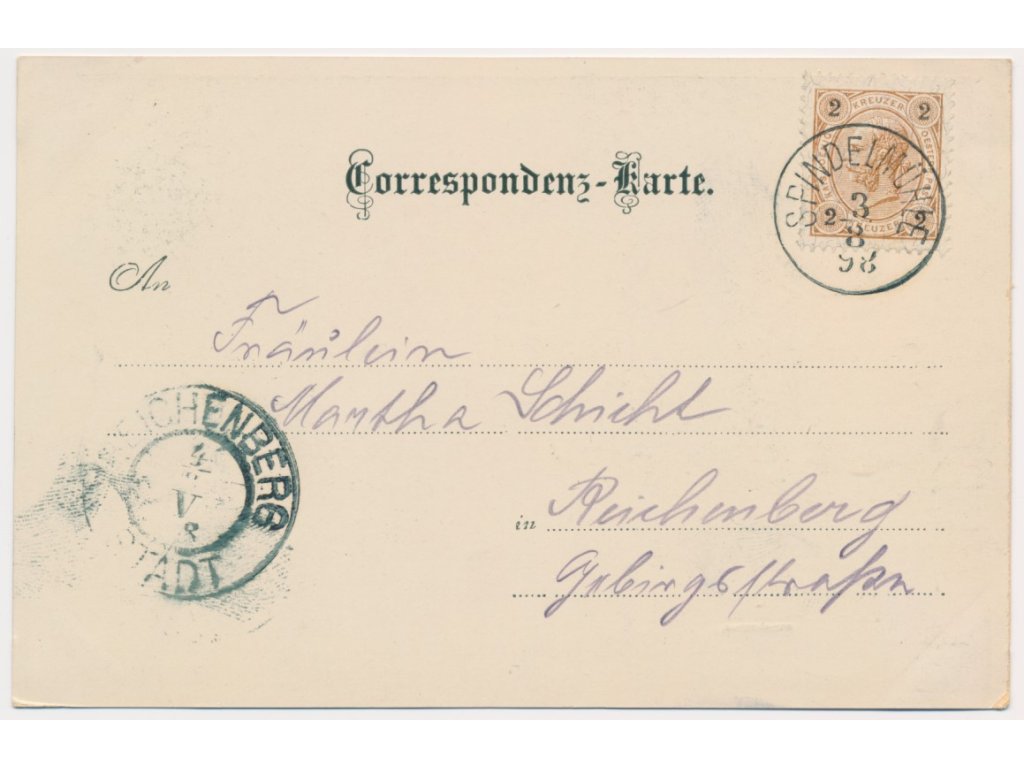 2 KREUZER 2
Correspondenz-Karte.
SPINDELMÜHLE
3
8
98
2 KREUZER 2
An
Fräulein
Martha Schicht
REICHENBERG
STADT
4
V
8
in Reichenberg
Gebirgsstraße